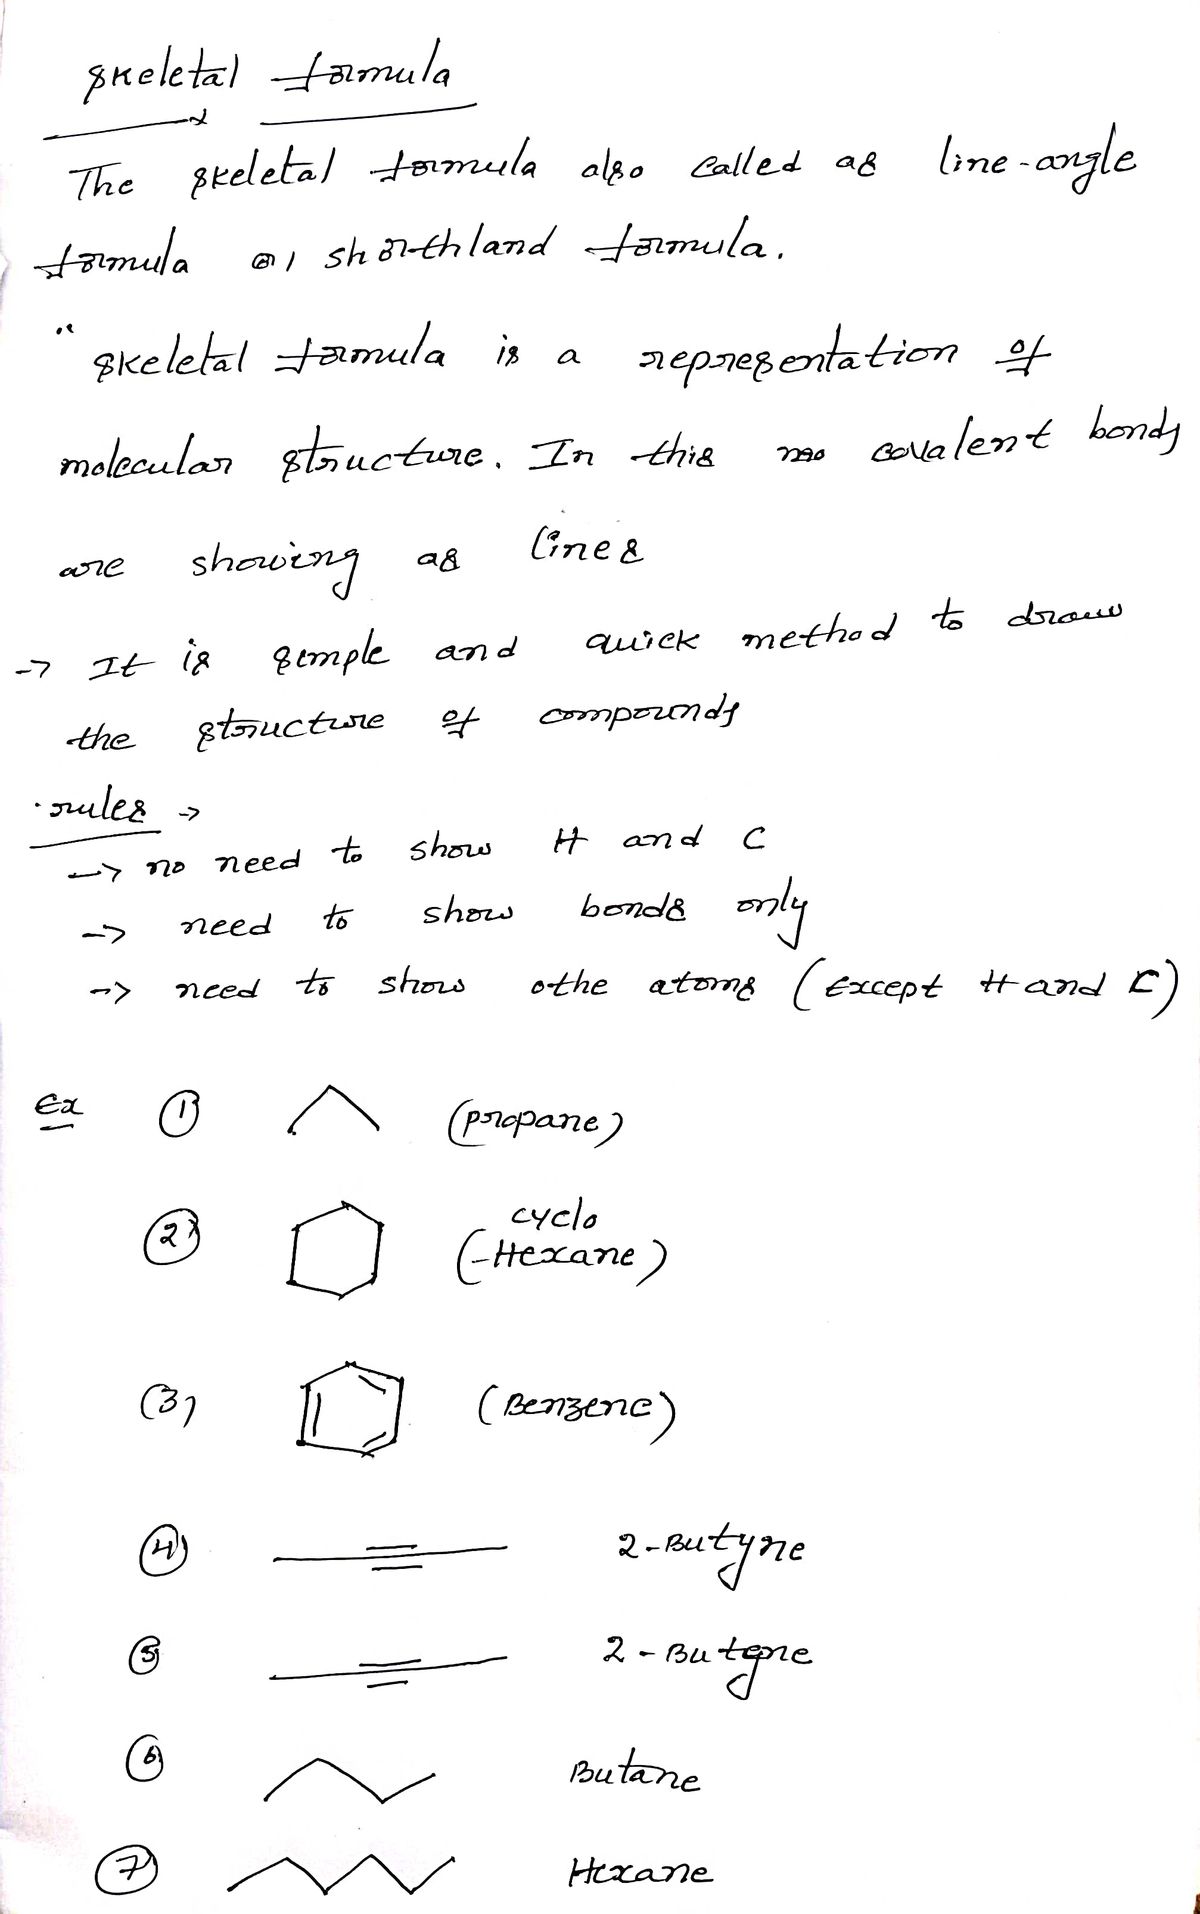 Skeletal formula
The skeletal formula also called as line-angle
formula or shorthland formula.
" skeletal formula is a representation of
molecular structure. In this covalent bonds
are showing as lines
-> It is simple and quick method to draw
the structure of compounds
. rules ->
-> no need to show H and C
-> need to show bonds only
-> need to show othe atoms (Except H and C)
Ex ① (propane)
② cyclo
(-Hexane)
(3) (Benzene)
④ 2-Butyne
⑤ 2-Butyne
⑥ Butane
⑦ Hexane